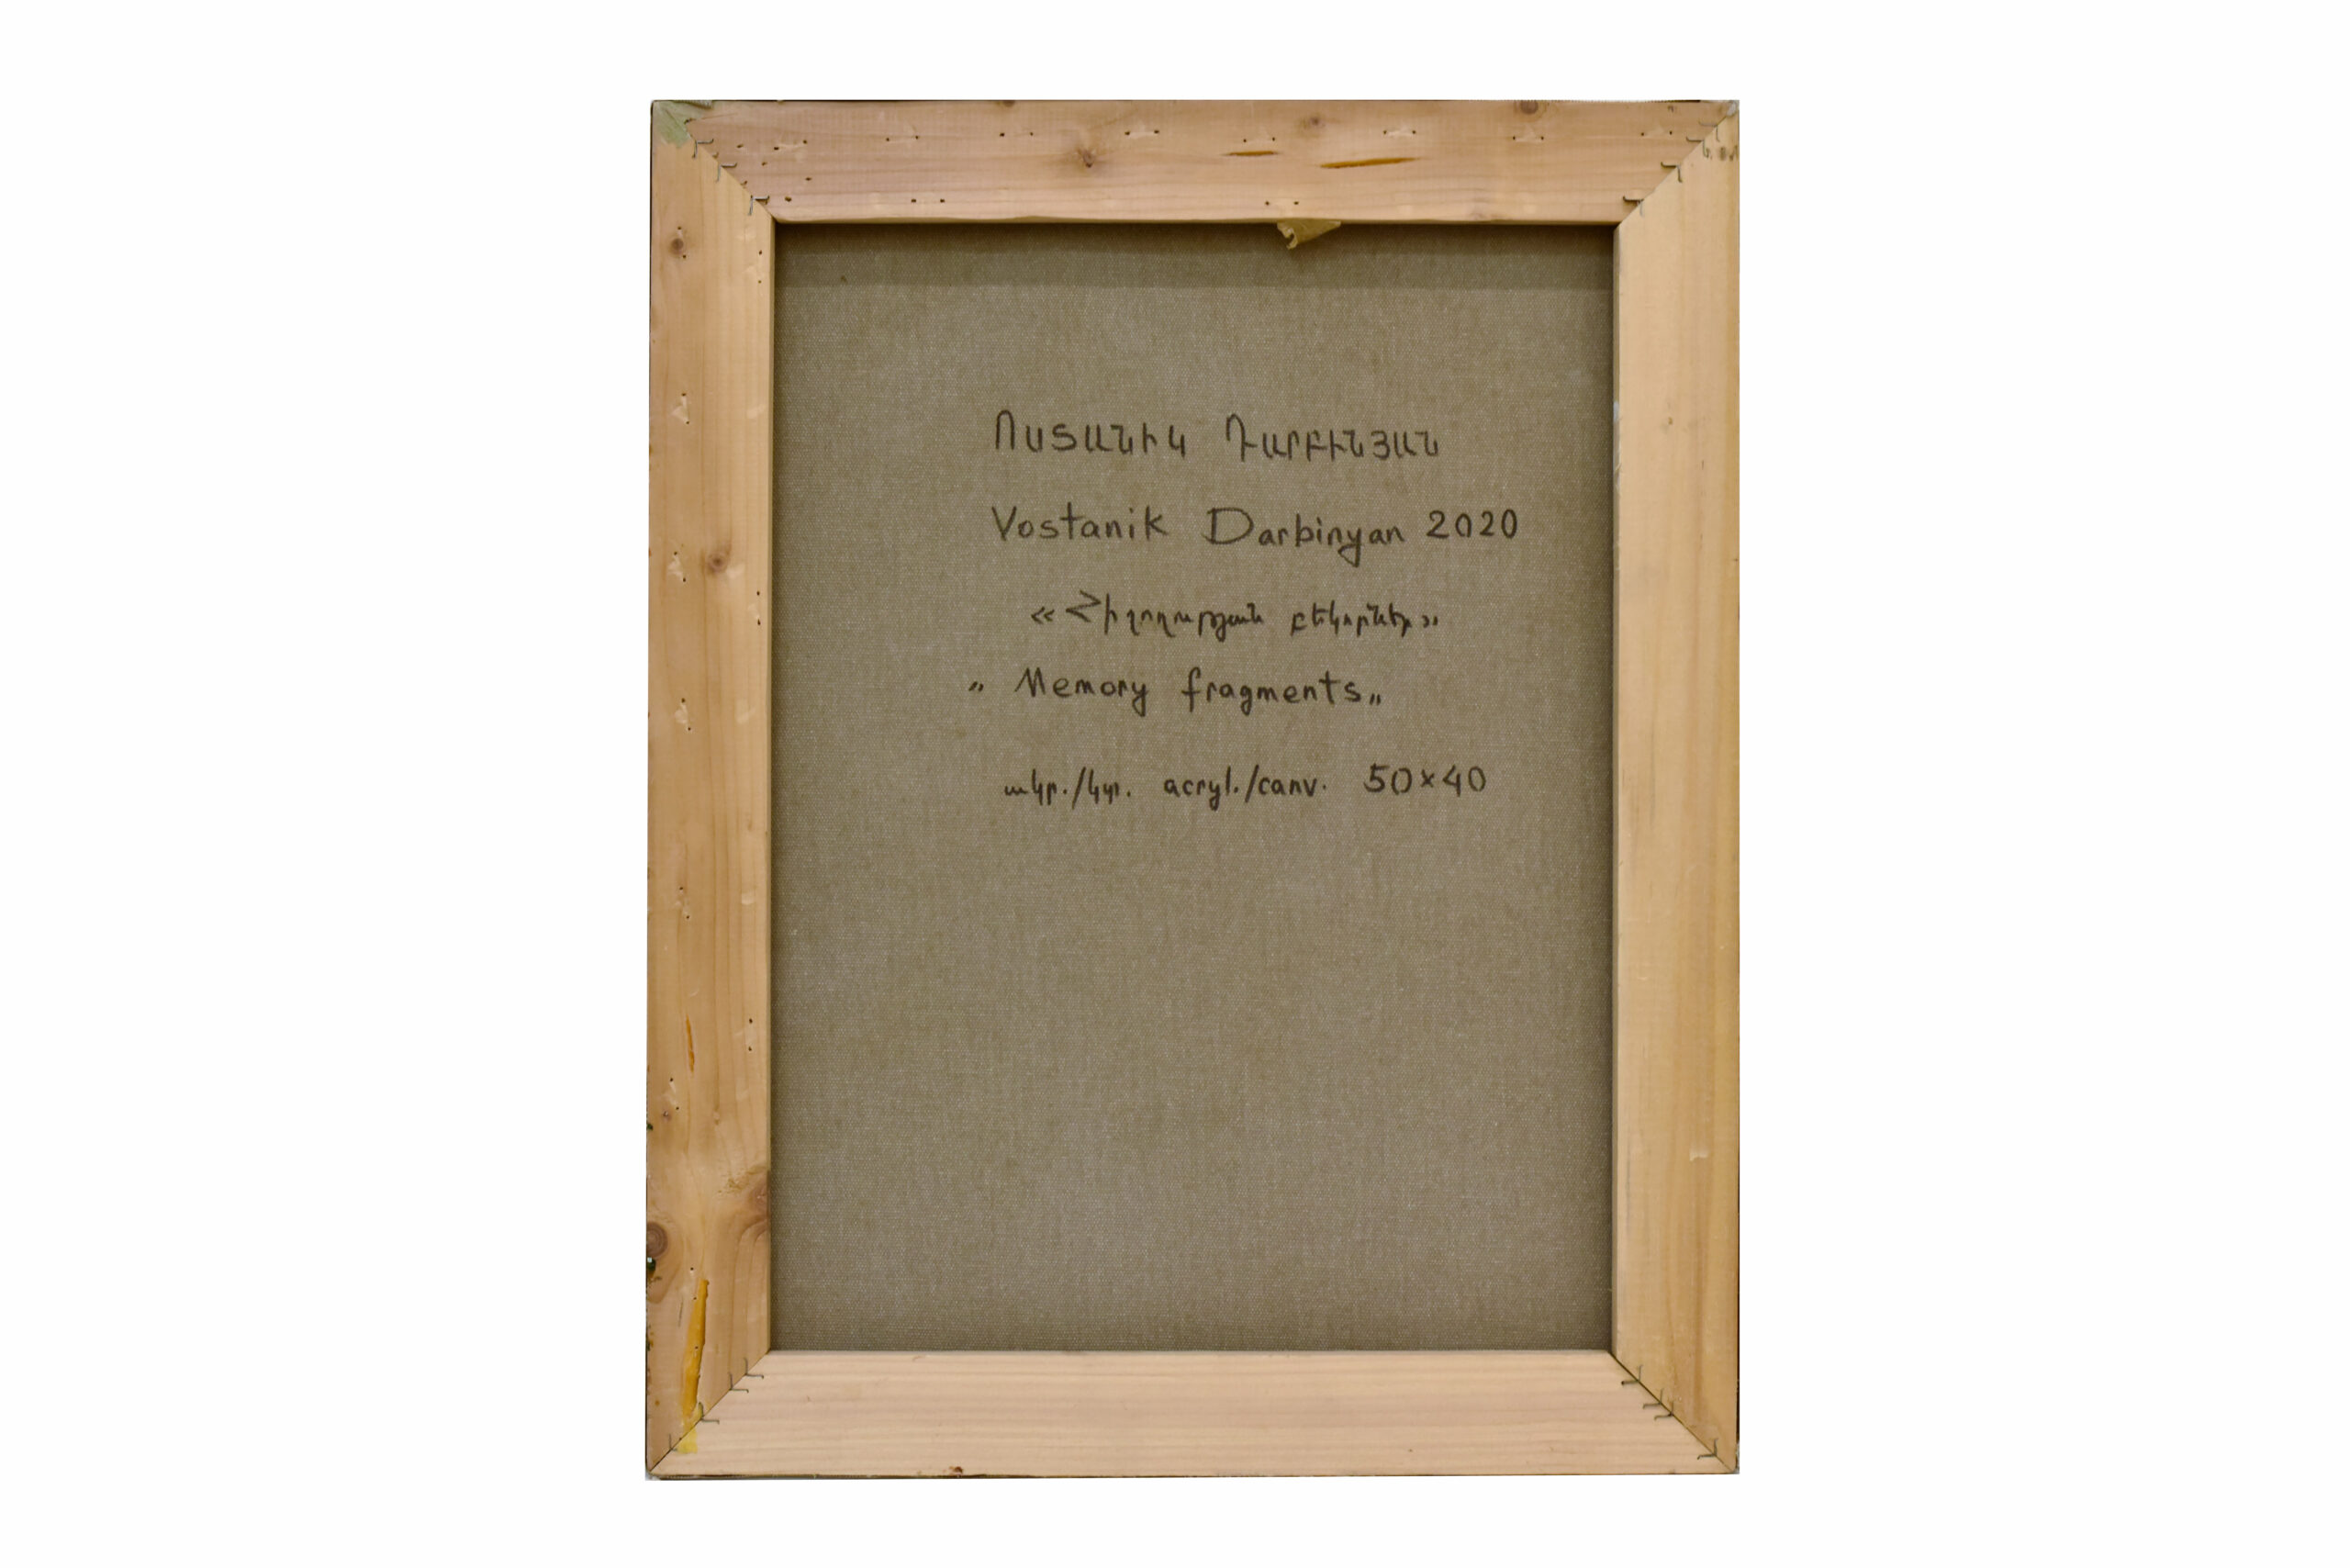 ՈՍՏԱՆԻԿ ԴԱՐԲԻՆՅԱՆ
Vostanik Darbinyan 2020
«Հիշողության բեկորներ»
„ Memory fragments„
ակր./կտ. acryl./canv. 50×40